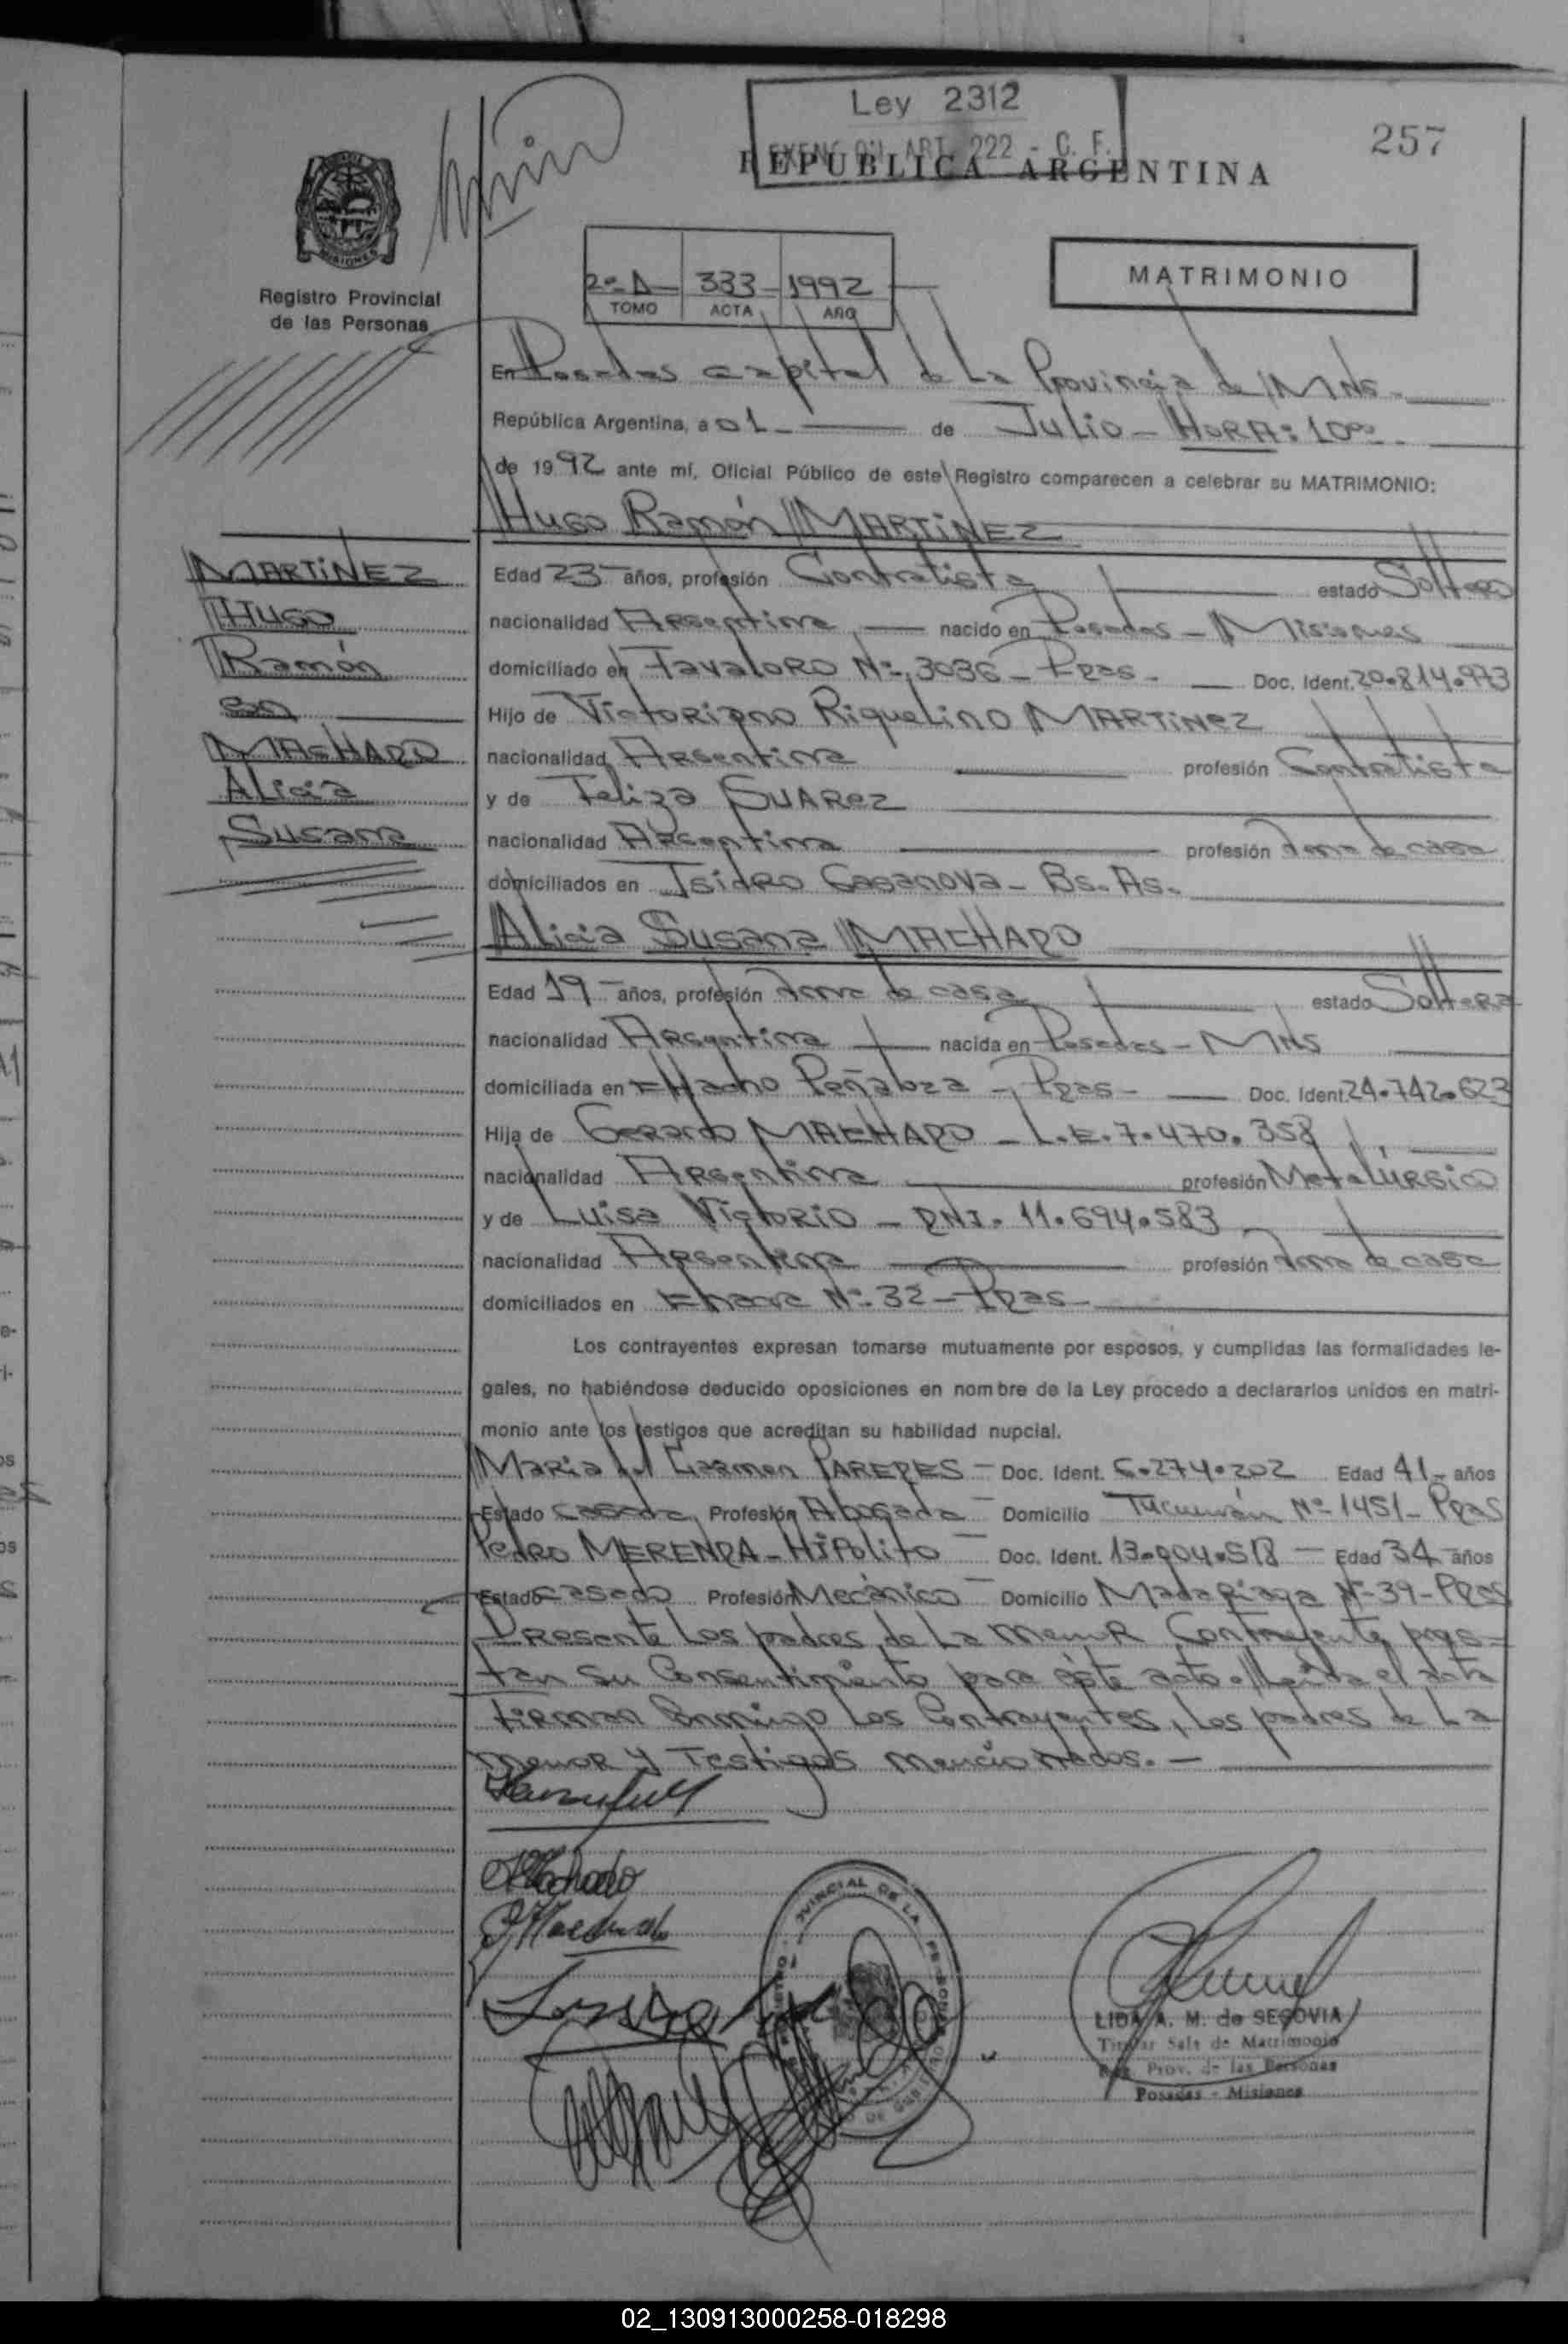 Ley 2312
EXENC ART. 222 - C. F.
257
REPUBLICA ARGENTINA
MISIONES
Registro Provincial
de las Personas
2º A 333 1992
TOMO ACTA AÑO
MATRIMONIO
En Posadas capital de La Provincia de Mns.
República Argentina, a 01 de Julio - HORA: 10
de 1992 ante mí, Oficial Público de este Registro comparecen a celebrar su MATRIMONIO:
Hugo Ramón MARTINEZ
MARTINEZ
Hugo
Ramón
con
MACHADO
Alicia
Susana
Edad 23 años, profesión Contratista estado Soltero
nacionalidad Argentina nacido en Posadas - Misiones
domiciliado en Favaloro Nº 3036 - Pdas - Doc. Ident. 20.814.973
Hijo de Victoriano Riquelino MARTINEZ
nacionalidad Argentina profesión Contratista
y de Feliza SUAREZ
nacionalidad Argentina profesión Ama de casa
domiciliados en Isidro Casanova - Bs. As.
Alicia Susana MACHADO
Edad 19 años, profesión Ama de casa estado Soltera
nacionalidad Argentina nacida en Posadas - Mns
domiciliada en Peñaloza - Pdas - Doc. Ident. 24.742.623
Hija de Gerardo MACHADO - L.E. 7.470.358
nacionalidad Argentina profesión Metalúrgico
y de Luisa Victorio - DNI. 11.694.583
nacionalidad Argentina profesión Ama de casa
domiciliados en Nº 32 - Pdas -
Los contrayentes expresan tomarse mutuamente por esposos, y cumplidas las formalidades le-
gales, no habiéndose deducido oposiciones en nombre de la Ley procedo a declararlos unidos en matri-
monio ante los testigos que acreditan su habilidad nupcial.
Maria del Carmen PAREDES - Doc. Ident. 6.274.202 Edad 41 años
Estado casada Profesión Abogada - Domicilio Tucumán Nº 1451 - Pdas
Pedro MERENDA - Hipolito - Doc. Ident. 13.004.518 - Edad 34 años
Estado casado Profesión Mecánico - Domicilio Madariaga Nº 39 - Pdas
Presente Los padres de La menor Contrayente pres-
tan su Consentimiento para éste acto. Leida el acta
firman Conmigo Los Contrayentes, Los padres de La
menor y Testigos mencionados. -
AMachado
GMachado
LIDA A. M. de SEGOVIA
Titular Sala de Matrimonio
Reg. Prov. de las Personas
Posadas - Misiones
02_130913000258-018298